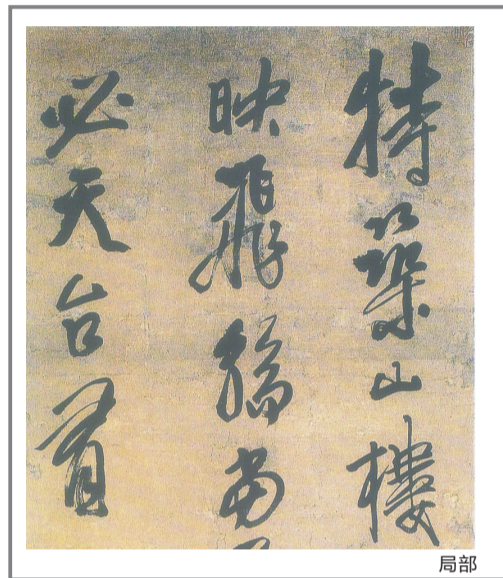 特築山樓
映飛
必天台有
局部